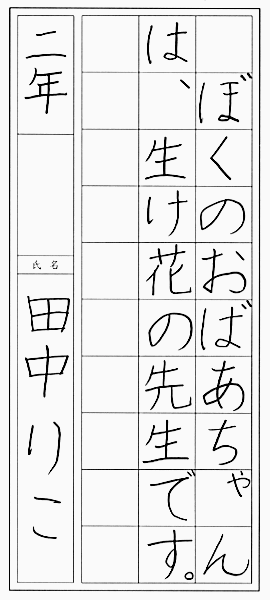 ぼくのおばあちゃん
は、生け花の先生です。
二年
氏名
田中りこ